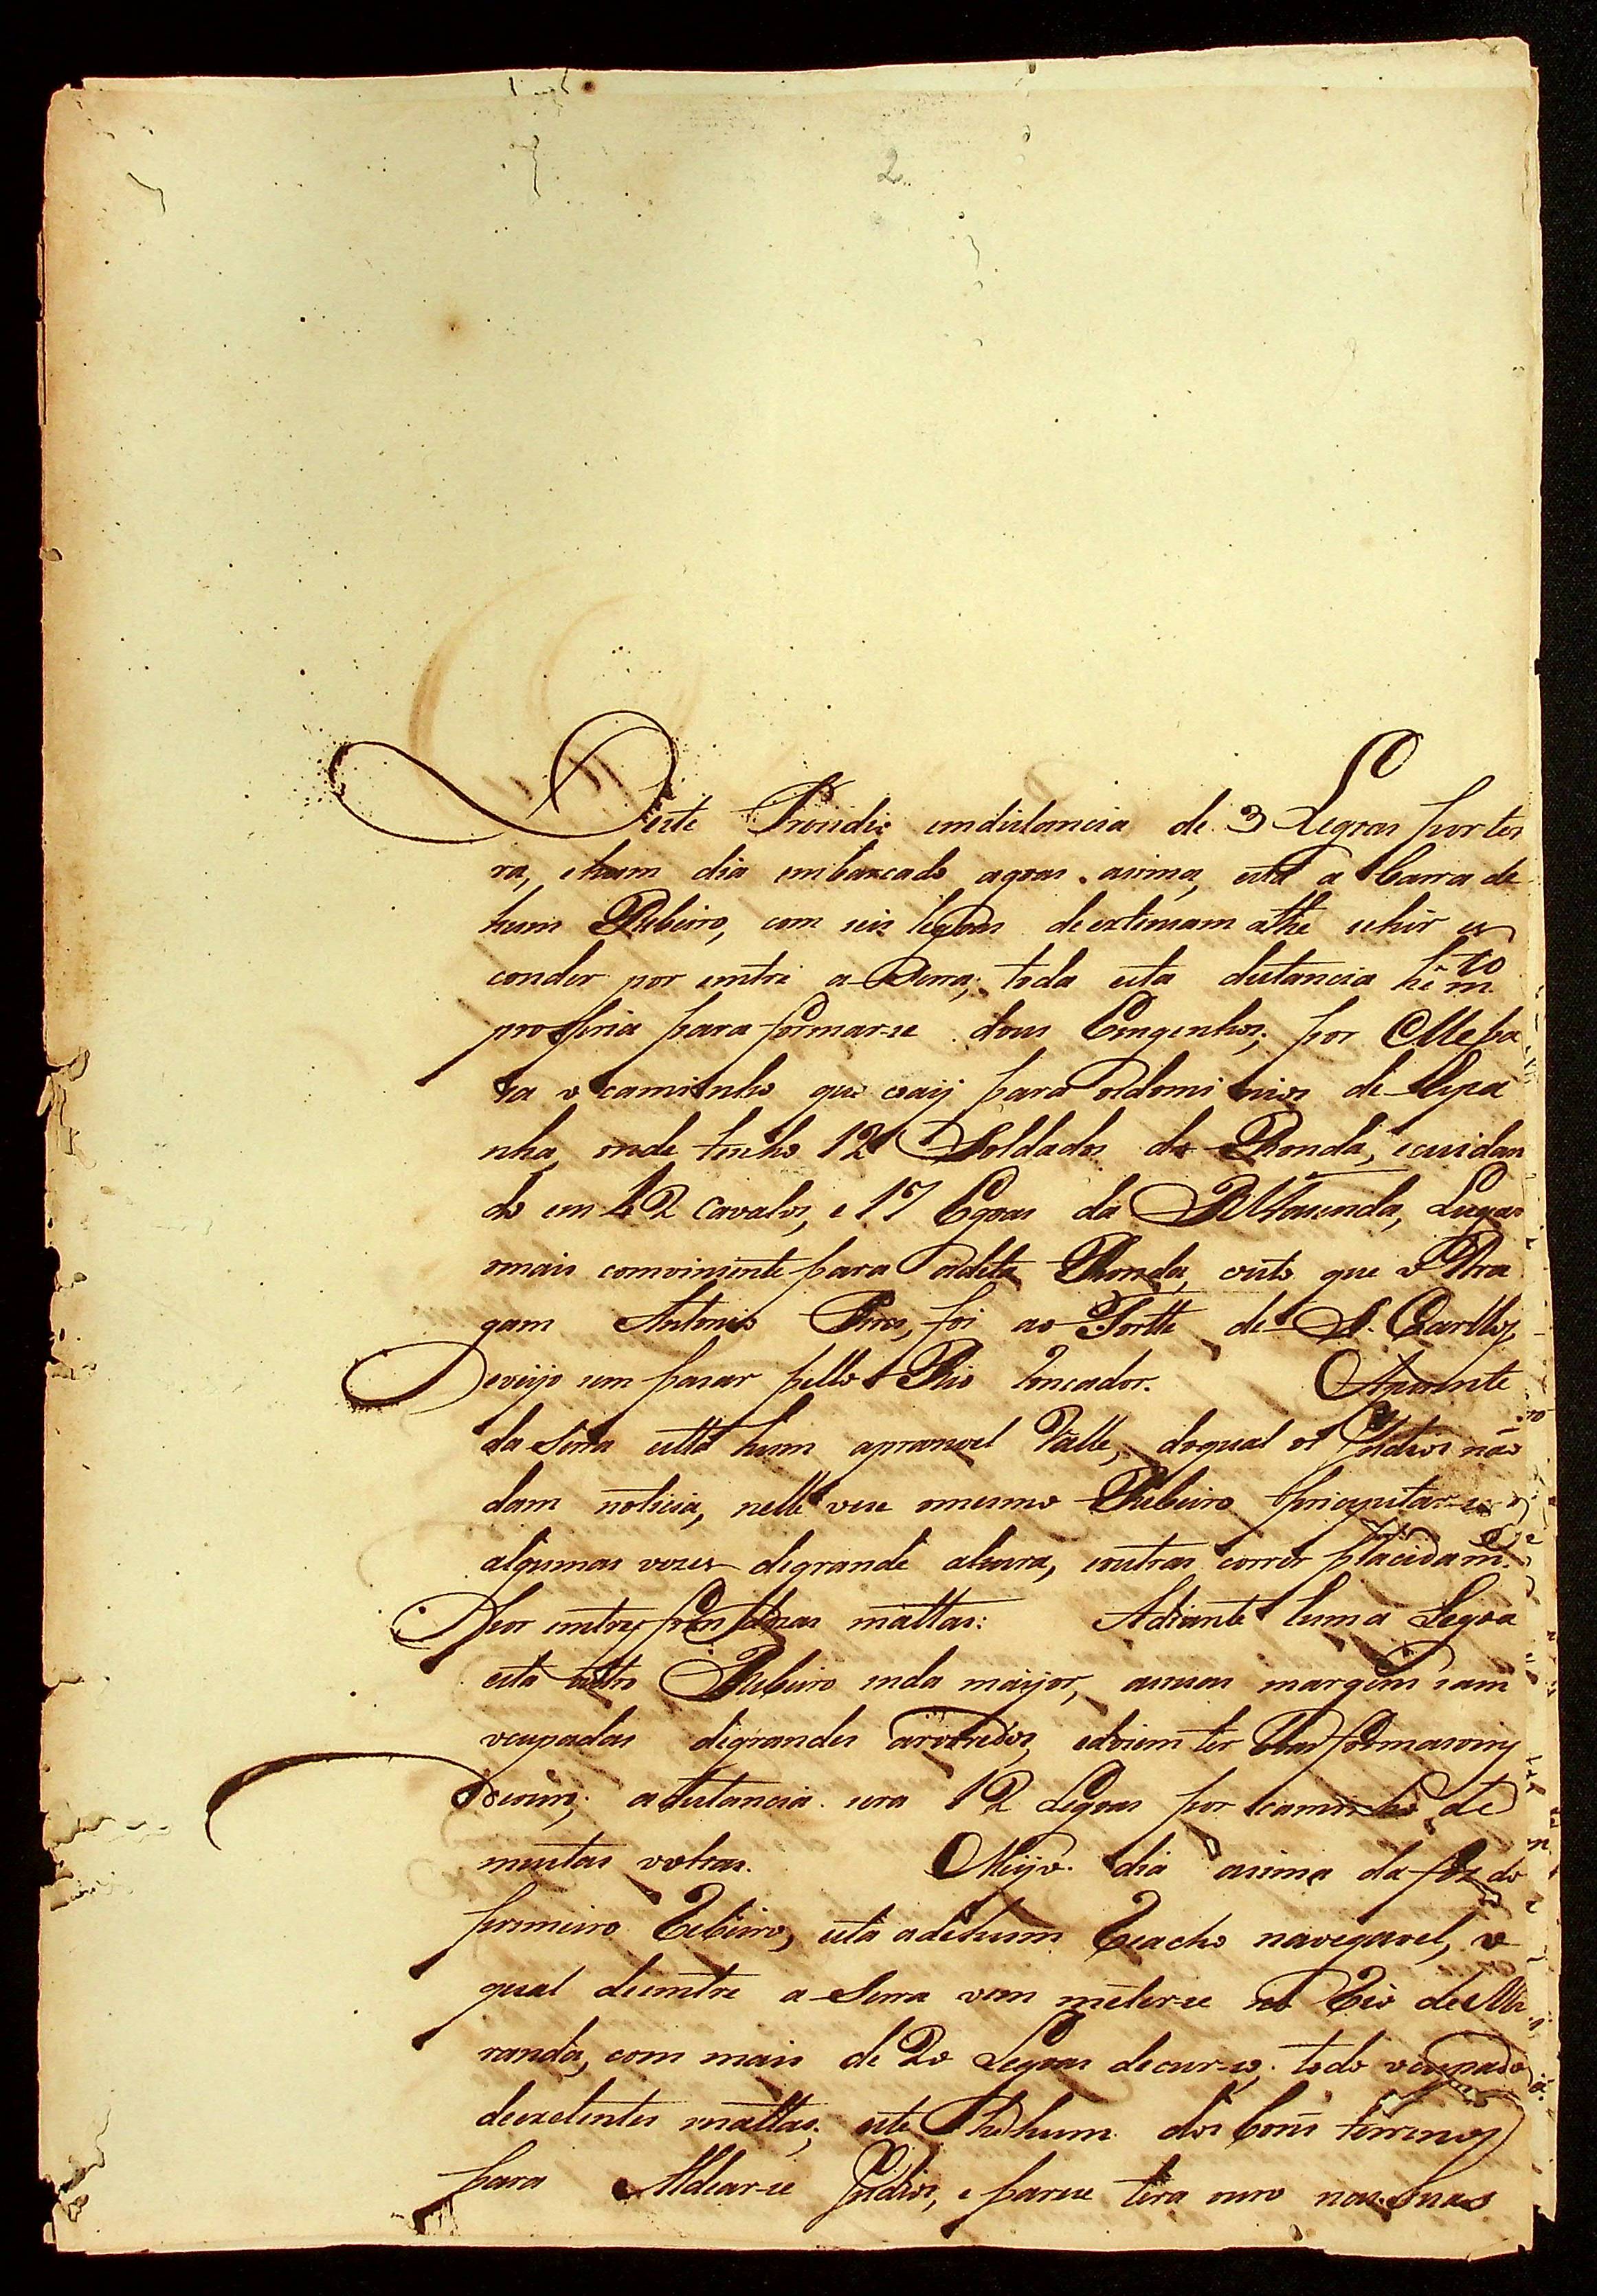 2
Deste Prezidio emdistancia de 3 Legoas por ter
ra, ehum dia embarcado agoas asima, está a barra de
hum Ribeiro, com seis legoas deextensam athé sehir es
conder por entre a Serra; toda esta distancia hé m.to
propria para formar-se dous Emgenhos; por elle pa
sa o caminho que vaij para osdominios de Espa
nha, onde tenho 12 Soldados de Ronda, ecuidan
do em 42 Cavalos, e 17 Egoas da Rl Fazenda, Lugar
mais comviniente para adita Ronda, visto que o Dra
gam Antonio Pires, foi ao Fortte de S. Carllos,
eveijo sem pasar pello Rio Toncador. Apoente
da Serra está hum aprazivel Valle, doqual os Indios não
dam noticia, nelle vese omesmo Ribeiro pricipitar-se
algumas vezes degrande altura, eoutras correr placidam.te
por entre frondozas mattas: Adiante huma Legoa
está outro Ribeiro inda maijor, assuas margens sam
ocupadas degrandes arvoredos, edvem ter boas formasoins
deouro; adistancia sera 12 Legoas por caminho de
muitas voltas. Meijo dia asima da fóz do
primeiro Ribeiro, está adehum Riacho navegavel, o
qual deentre a Serra vem meter-se no Rio de Mi
randa, com mais de 20 Legoas decurso, todo ocupado
deexelentes mattas; este he hum dos bons terrenos
para Aldear-se Indios, e parese tera ouro nas suas